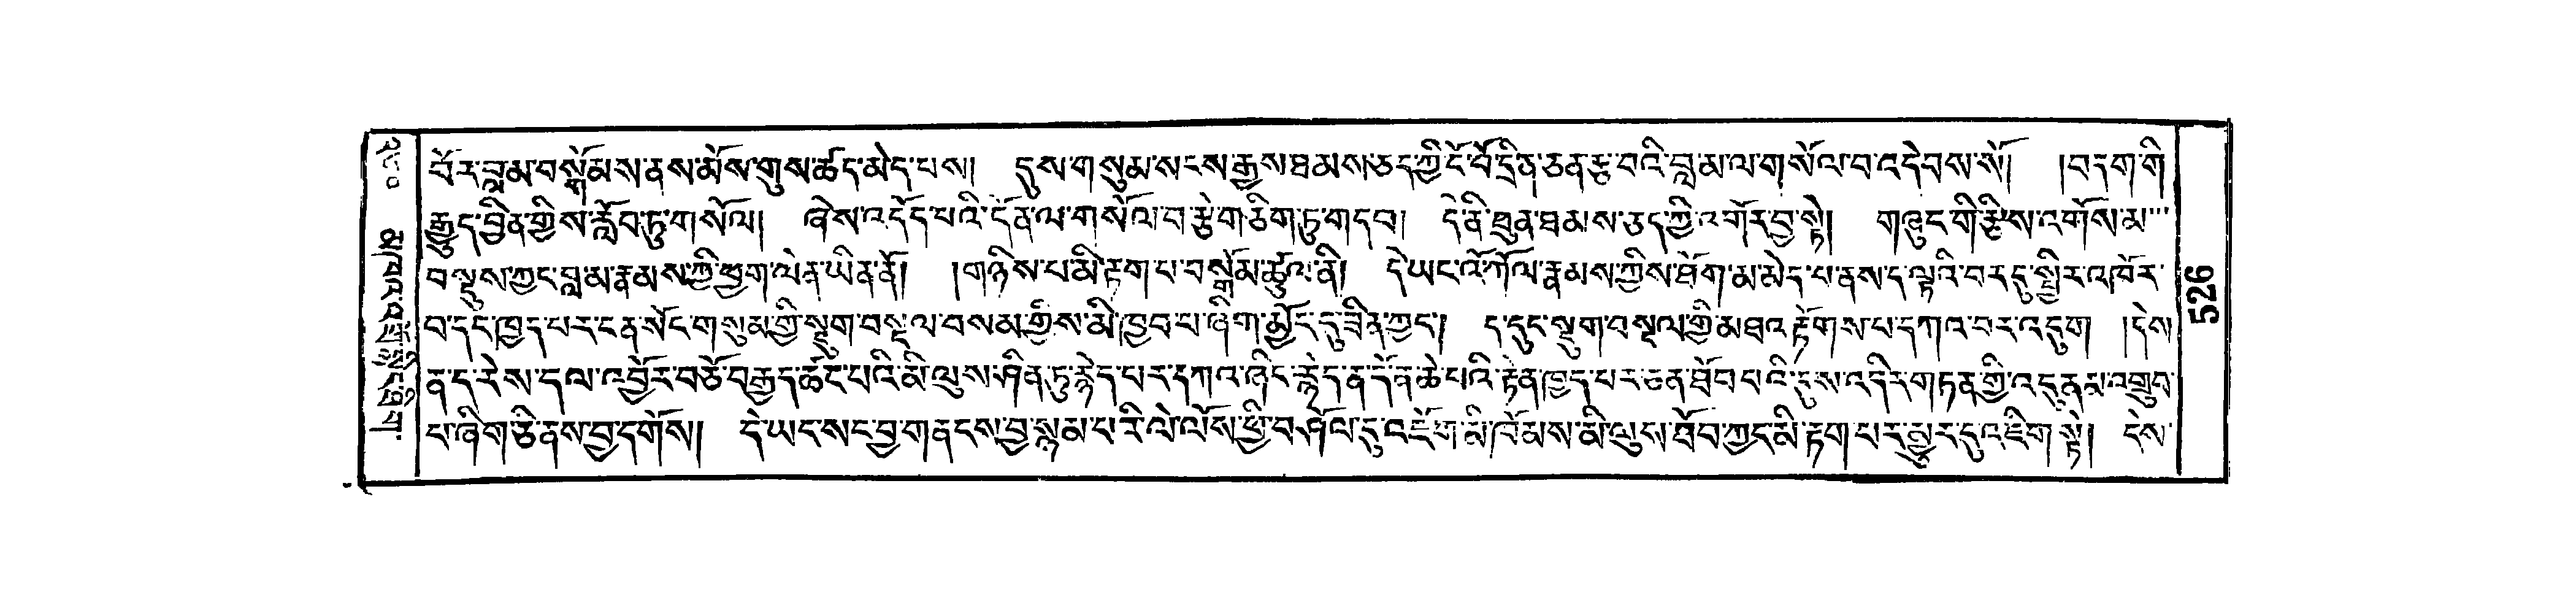 བོར་བླམ་བསྒོམས་ནས་མོས་གུས་ཚད་མེད་པས། དུས་གསུམ་སངས་རྒྱས་ཐམས་ཅད་ཀྱི་ངོ་བོ་དྲིན་ཅན་རྩ་བའི་བླ་མ་ལ་གསོལ་བ་འདེབས་སོ། །བདག་གི
རྒྱུད་བྱིན་གྱིས་རློབ་ཏུ་གསོལ། ཞེས་འདོད་པའི་དོན་ལ་གསོལ་བ་རྩེ་གཅིག་ཏུ་གདབ། དེ་ནི་ཐུན་ཐམས་ཅད་ཀྱི་འགོར་བྱ་སྟེ། གཞུང་གི་རྩིས་འགོས་མ་་་
བསྡུས་ཀྱང་བླམ་རྣམས་ཀྱི་ཕྱག་ལེན་ཡིན་ནོ། །གཉིས་པ་མི་རྟག་པ་བསྒོམ་ཚུལ་ནི། དེ་ཡང་འོ་ཀོལ་རྣམས་ཀྱིས་ཐོག་མ་མེད་པ་ནས་ད་ལྟའི་བར་དུ་སྤྱིར་འཁོར་
བ་དང་ཁྱད་པར་ངན་སོང་གསུམ་གྱི་སྡུག་བསྔལ་བསམ་གྱིས་མི་ཁྱབ་པ་ཞིག་མྱོང་དུ་ཟིན་ཀྱང་། ད་དུང་སྡུག་བསྔལ་གྱི་མཐའ་རྟོགས་པ་དཀའ་བར་འདུག །དེས
ན་ད་རེས་དལ་འབྱོར་བཅོ་བརྒྱད་ཚང་པའི་མི་ལུས་ཤིན་ཏུ་རྙེད་པར་དཀའ་ཞིང་རྙེད་ན་དོན་ཆེ་པའི་རྟེན་ཁྱད་པར་ཅན་ཐོབ་པའི་དུས་འདིར་གཏན་གྱི་འདུན་མ་འགྲུབ་
པ་ཞིག་ཅི་ནས་བྱ་དགོས། དེ་ཡང་སང་བྱ་གནངས་བྱ་སྙམ་པ་རི་ལེ་ལོས་ཕྱི་བཤོལ་དུ་བཇོག་མི་ཁོམས་མི་ལུས་ཐོབ་ཀྱང་མི་རྟག་པར་མྱུར་དུ་འཇིག་སྟེ། དེས་